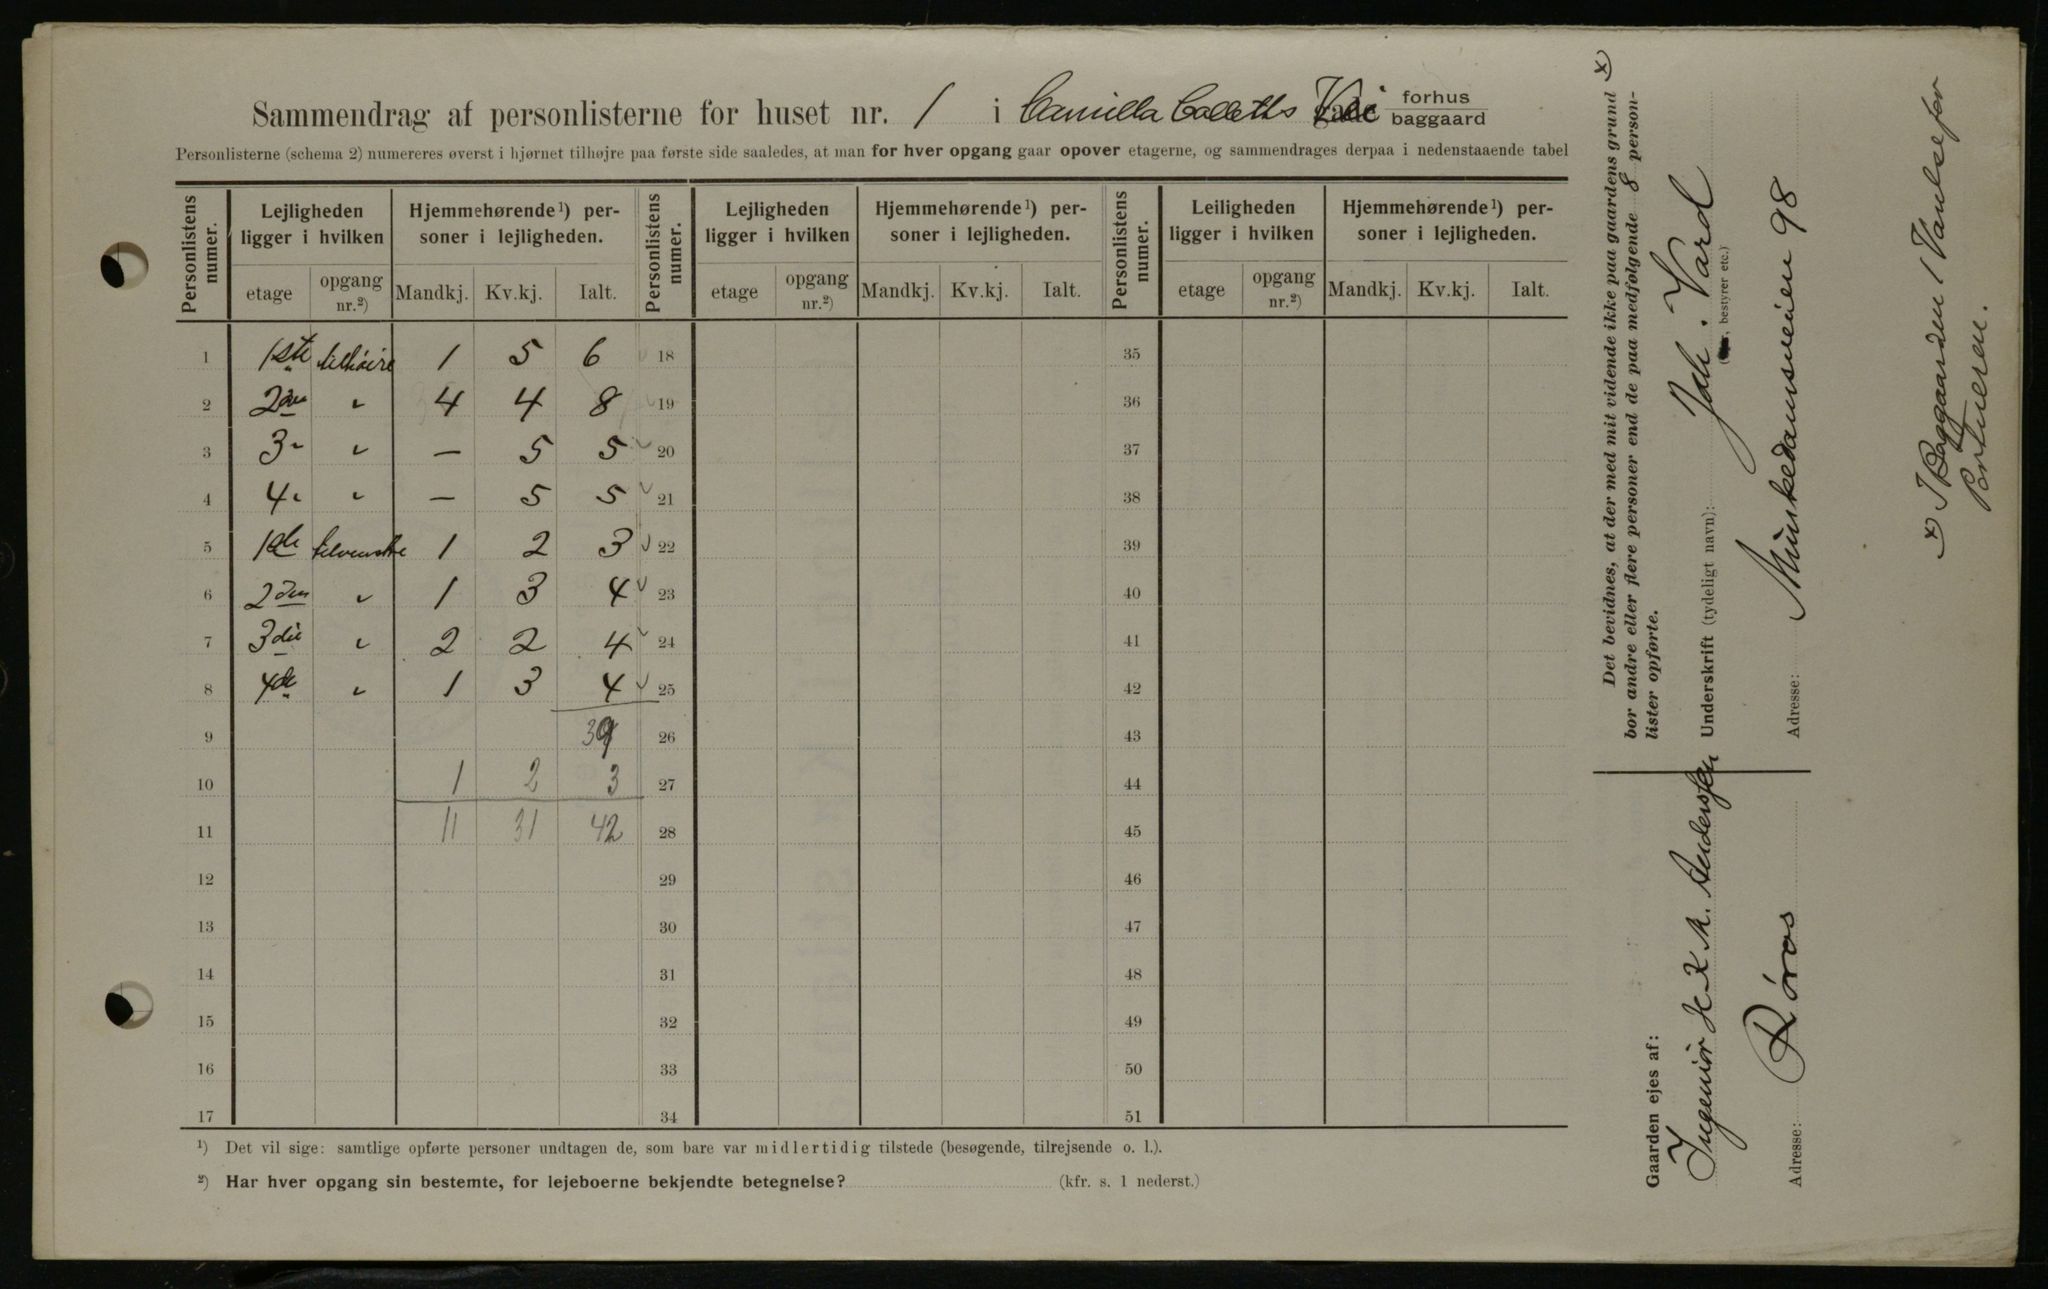 Sammendrag af personlisterne for huset nr. 1 i Camilla Colletts Vei forhus baggaard
Personlisterne (schema 2) numereres øverst i hjørnet tilhøjre paa første side saaledes, at man for hver opgang gaar opover etagerne, og sammendrages derpaa i nedenstaaende tabel
Personlistens numer. Lejligheden ligger i hvilken Hjemmehørende¹) personer i lejligheden. Personlistens numer. Lejligheden ligger i hvilken Hjemmehørende¹) personer i lejligheden. Personlistens numer. Leiligheden ligger i hvilken Hjemmehørende¹) personer i lejligheden.
etage opgang nr.²) Mandkj. Kv.kj. Ialt. etage opgang nr.²) Mandkj. Kv.kj. Ialt. etage opgang nr.²) Mandkj. Kv.kj. Ialt.
1 1ste tilhøire 1 5 6 18 35
2 2den " 4 4 8 19 36
3 3" " — 5 5 20 37
4 4" " — 5 5 21 38
5 1ste tilvenstre 1 2 3 22 39
6 2den " 1 3 4 23 40
7 3die " 2 2 4 24 41
8 4de " 1 3 4 25 42
9 39 26 43
10 1 2 3 27 44
11 11 31 42 28 45
12 29 46
13 30 47
14 31 48
15 32 49
16 33 50
17 34 51
¹) Det vil sige: samtlige opførte personer undtagen de, som bare var midlertidig tilstede (besøgende, tilrejsende o. l.).
²) Har hver opgang sin bestemte, for lejeboerne bekjendte betegnelse? (kfr. s. 1 nederst.)
Det bevidnes, at der med mit vidende ikke paa gaardens grund x)
bor andre eller flere personer end de paa medfølgende 8 person-
lister opførte.
Underskrift (tydeligt navn): Joh. Vard
bestyrer etc.)
Adresse: Munkedamsveien 98
Gaarden ejes af:
Ingeniør H. K. M. Anderssen
Adresse: Røros
x) I Baggaarden 1 Vaulse for
Portneren.